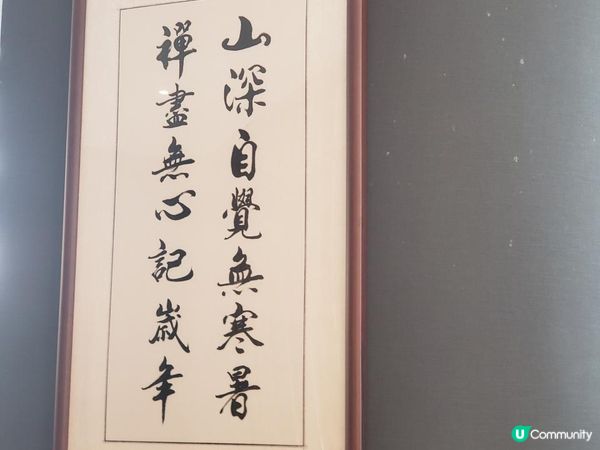 山深自覺無寒暑
禪盡無心記歲年
U Community